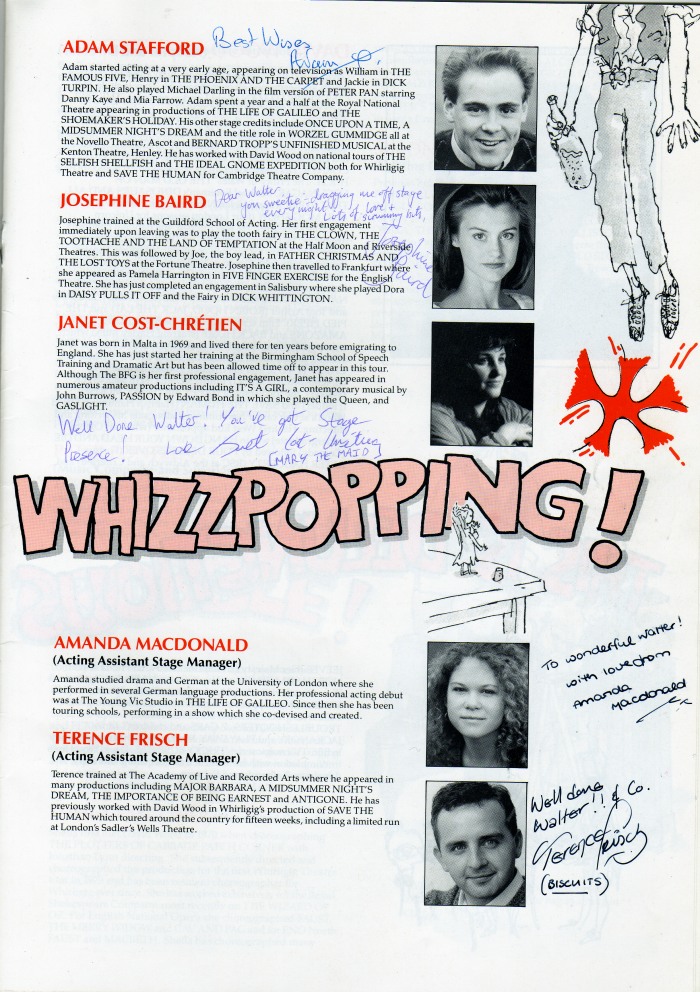 ADAM STAFFORD Best Wises
Adam
Adam started acting at a very early age, appearing on television as William in THE
FAMOUS FIVE, Henry in THE PHOENIX AND THE CARPET and Jackie in DICK
TURPIN. He also played Michael Darling in the film version of PETER PAN starring
Danny Kaye and Mia Farrow. Adam spent a year and a half at the Royal National
Theatre appearing in productions of THE LIFE OF GALILEO and THE
SHOEMAKER'S HOLIDAY. His other stage credits include ONCE UPON A TIME, A
MIDSUMMER NIGHT'S DREAM and the title role in WORZEL GUMMIDGE all at
the Novello Theatre, Ascot and BERNARD TROPP'S UNFINISHED MUSICAL at the
Kenton Theatre, Henley. He has worked with David Wood on national tours of THE
SELFISH SHELLFISH and THE IDEAL GNOME EXPEDITION both for Whirligig
Theatre and SAVE THE HUMAN for Cambridge Theatre Company.
JOSEPHINE BAIRD Dear Walter
you sweetie - dragging me off stage
every night! Lots of love &
Josephine Baird
Josephine trained at the Guildford School of Acting. Her first engagement
immediately upon leaving was to play the tooth fairy in THE CLOWN, THE
TOOTHACHE AND THE LAND OF TEMPTATION at the Half Moon and Riverside
Theatres. This was followed by Joe, the boy lead, in FATHER CHRISTMAS AND
THE LOST TOYS at the Fortune Theatre. Josephine then travelled to Frankfurt where
she appeared as Pamela Harrington in FIVE FINGER EXERCISE for the English
Theatre. She has just completed an engagement in Salisbury where she played Dora
in DAISY PULLS IT OFF and the Fairy in DICK WHITTINGTON.
JANET COST-CHRÉTIEN
Janet was born in Malta in 1969 and lived there for ten years before emigrating to
England. She has just started her training at the Birmingham School of Speech
Training and Dramatic Art but has been allowed time off to appear in this tour.
Although The BFG is her first professional engagement, Janet has appeared in
numerous amateur productions including IT'S A GIRL, a contemporary musical by
John Burrows, PASSION by Edward Bond in which she played the Queen, and
GASLIGHT.
Well Done Walter! You've got Stage
Presence! Love Janet Cost-Chrétien
[MARY THE MAID]
WHIZZPOPPING!
AMANDA MACDONALD
(Acting Assistant Stage Manager)
Amanda studied drama and German at the University of London where she
performed in several German language productions. Her professional acting debut
was at The Young Vic Studio in THE LIFE OF GALILEO. Since then she has been
touring schools, performing in a show which she co-devised and created.
To wonderful Walter!
with love from
Amanda
Macdonald
TERENCE FRISCH
(Acting Assistant Stage Manager)
Terence trained at The Academy of Live and Recorded Arts where he appeared in
many productions including MAJOR BARBARA, A MIDSUMMER NIGHT'S
DREAM, THE IMPORTANCE OF BEING EARNEST and ANTIGONE. He has
previously worked with David Wood in Whirligig's production of SAVE THE
HUMAN which toured around the country for fifteen weeks, including a limited run
at London's Sadler's Wells Theatre.
Well done
Walter!! & Co.
Terence Frisch
(BISCUITS)